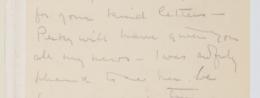 for your kind letters –
Perky will have given you
all my news – I was awfully
pleased to see her. be